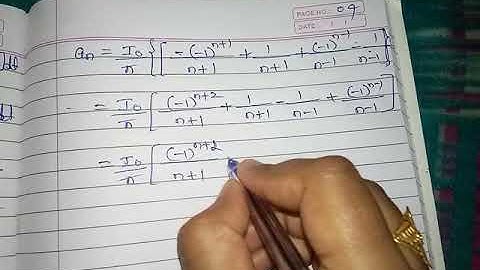 PAGE NO. 04
DATE
aₙ = I₀/n { [ -(-1)ⁿ⁺¹/n+1 + 1/n+1 + (-1)ⁿ⁻¹/n-1 - 1/n-1 ]
= I₀/n [ (-1)ⁿ⁺²/n+1 + 1/n+1 - 1/n-1 + (-1)ⁿ⁻¹/n-1 ]
= I₀/n [ (-1)ⁿ⁺²/n+1